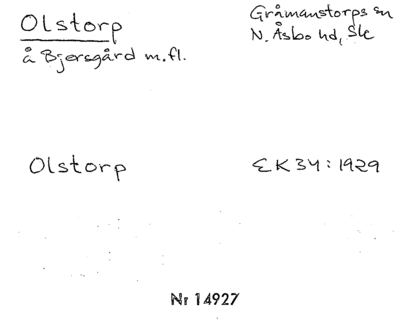 Olstorp
å Bjersgård m.fl.
Gråmanstorps sn
N. Åsbo hd, Sk
Olstorp
EK34:1929
Nr 14927